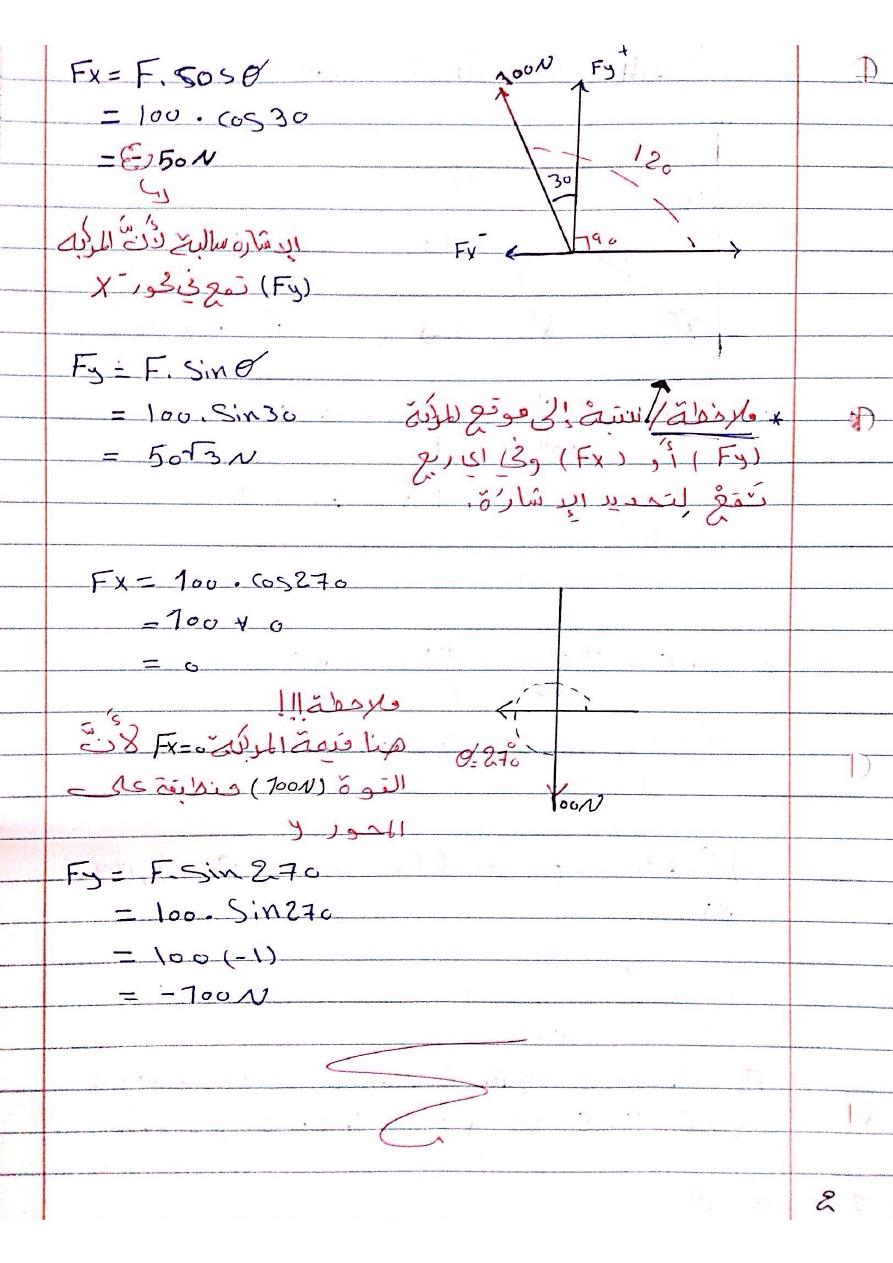 Fx = F. cosθ
= 100 . cos30
= (-) 50N
الإشارة سالبة لأنَّ المركبة
(Fy) تقع في محور X⁻
100N
Fy⁺
30
120
90
Fx⁻
Fy = F. Sinθ
= 100. Sin30
= 50√3 N
* ملاحظة / ننتبة إلى موقع المركبة
(Fy) أو (Fx) وفي اي ربع
تقعْ لِتحديد الإشارة.
Fx = 100 . Cos270
= 100 * 0
= 0
θ=270°
100N
ملاحظة!!!
هنا قيمة المركبة Fx=0 لأنَّ
القوة (100N) منطبقة على
المحور y
Fy = F. Sin270
= 100. Sin270
= 100 (-1)
= -100N